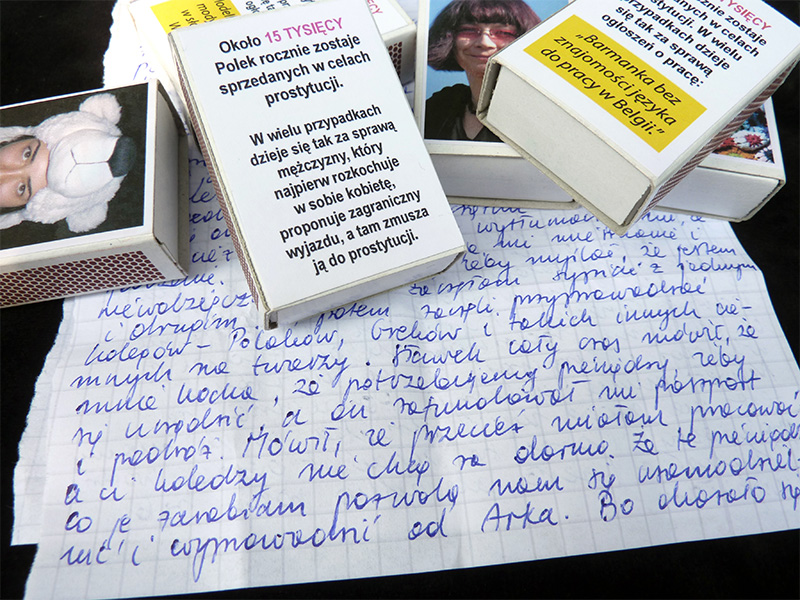 Model
mody
W wi
Około 15 TYSIĘCY
Polek rocznie zostaje
sprzedanych w celach
prostytucji.
W wielu przypadkach
dzieje się tak za sprawą
mężczyzny, który
najpierw rozkochuje
w sobie kobietę,
proponuje zagraniczny
wyjazdu, a tam zmusza
ją do prostytucji.
TYSIĘCY
rocznie zostaje
danych w celach
stytucji. W wielu
przypadkach dzieje
się tak za sprawą
ogłoszeń o pracę:
„Barmanka bez
znajomości języka
do pracy w Belgii.”
żeby myślał, że jestem
zaczęłam sypiać z jednym
i drugim potem zaczęli przyprowadzać
kolegów - Polaków, Greków i takich innych cie-
mnych na twarzy. Sławek cały czas mówił, że
mnie kocha, że potrzebujemy pieniędzy, żeby
się urządzić, a on zafundował mi paszport
i podróż. Mówił, że przecież miałam pracować
a ci koledzy nie chcą za darmo. Że te pieniądze
co je zarabiam pozwolą nam się usamodziel-
nić i wyprowadzić od Arka. Bo okazało się